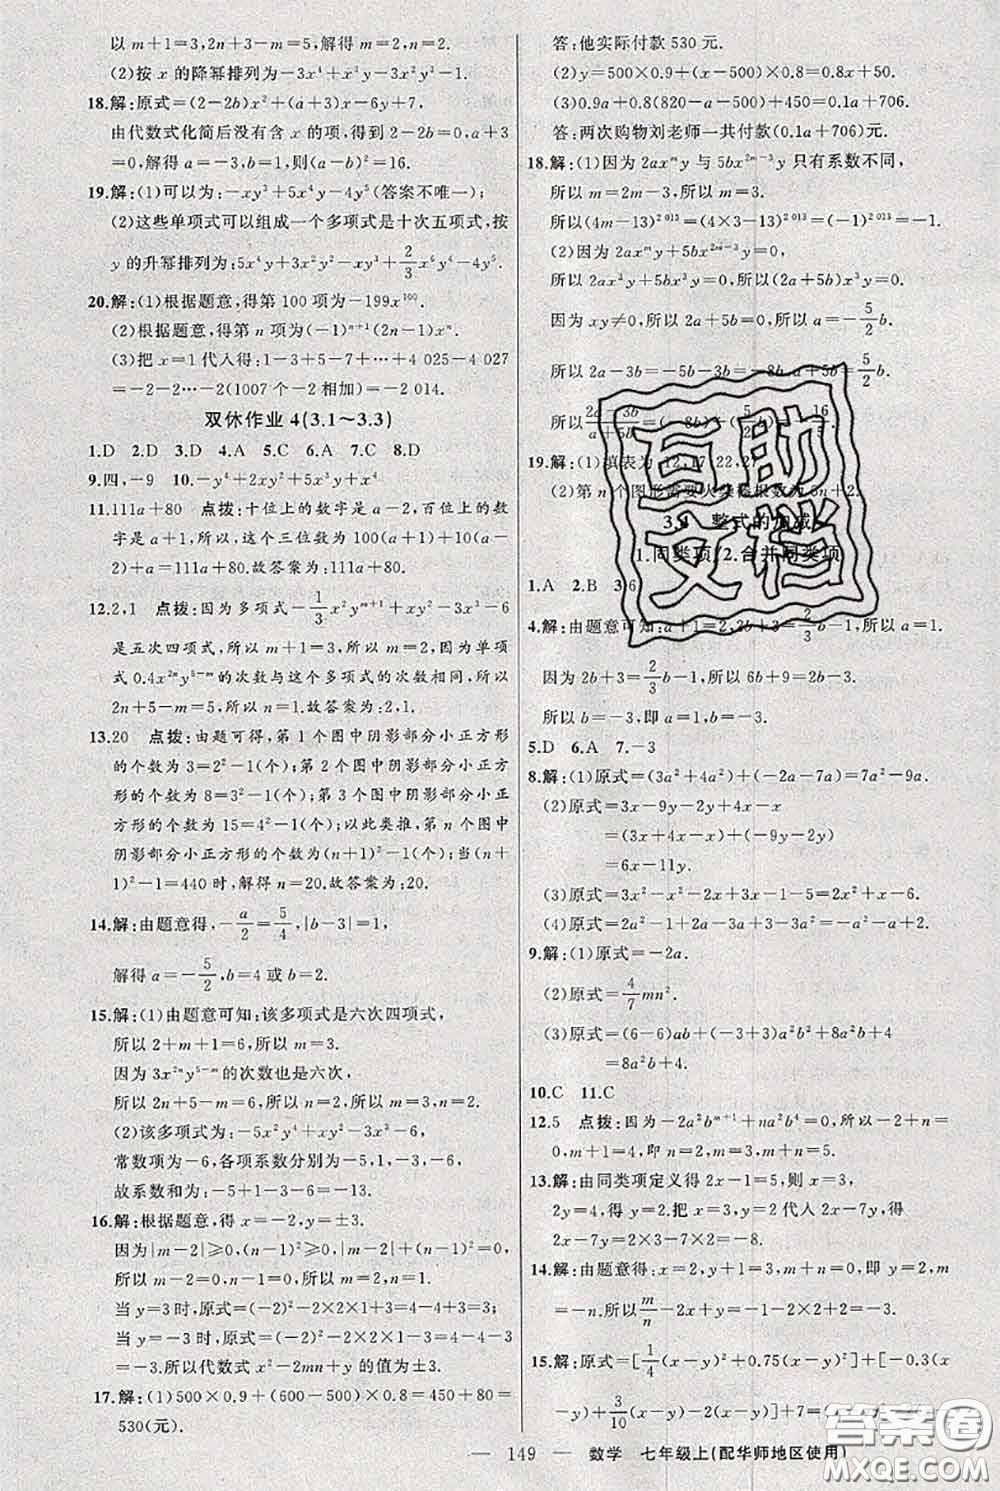 以 m+1=3,2n+3-m=5,解得 m=2,n=2.
(2)按 x 的降幂排列为-3x⁴+x³y-3x²y³-1.
18.解:原式=(2-2b)x²+(a+3)x-6y+7,
由代数式化简后没有含 x 的项,得到 2-2b=0,a+3
=0,解得 a=-3,b=1,则(a-b)²=16.
19.解:(1)可以为:-xy³+5x⁴y-4y⁵(答案不唯一);
(2)这些单项式可以组成一个多项式是十次五项式,按
y 的升幂排列为:5x⁴y-2x³y²-xy³+2/3x⁶y⁴-4y⁵.
20.解:(1)根据题意,得第 100 项为-199x¹⁰⁰.
(2)根据题意,得第 n 项为(-1)ⁿ⁺¹(2n-1)xⁿ.
(3)把 x=1 代入得:1-3+5-7+…+4 025-4 027
=-2-2…-2(1007 个-2 相加)=-2 014.
双休作业 4(3.1~3.3)
1.D 2.D 3.D 4.A 5.C 6.A 7.C 8.D
9.四,-9 10.-y⁴+2xy³+5x²y²+x³y
11.111a+80 点拨:十位上的数字是 a-2,百位上的数字
是 a+1,所以,这个三位数为 100(a+1)+10(a-2)
+a=111a+80.故答案为:111a+80.
12.2,1 点拨:因为多项式-1/3x²yᵐ⁺¹+xy²-3x³-6
是五次四项式,所以 m+1=3,所以 m=2.因为单项
式 0.4x²ⁿy⁵⁻ᵐ的次数与这个多项式的次数相同,所以
2n+5-m=5,所以 n=1.故答案为:2,1.
13.20 点拨:由题可得,第 1 个图中阴影部分小正方形
的个数为 3=2²-1(个);第 2 个图中阴影部分小正方
形的个数为 8=3²-1(个);第 3 个图中阴影部分小正
方形的个数为 15=4²-1(个);以此类推,第 n 个图中
阴影部分小正方形的个数为(n+1)²-1(个);当(n+
1)²-1=440 时,解得 n=20.故答案为:20.
14.解:由题意得,-a/2=5/4,|b-3|=1,
解得 a=-5/2,b=4 或 b=2.
15.解:(1)由题意可知:该多项式是六次四项式,
所以 2+m+1=6,所以 m=3.
因为 3x²ⁿy⁵⁻ᵐ的次数也是六次,
所以 2n+5-m=6,所以 n=2,所以 m=3,n=2.
(2)该多项式为:-5x²y⁴+xy²-3x³-6,
常数项为-6,各项系数分别为-5,1,-3,-6,
故系数和为:-5+1-3-6=-13.
16.解:根据题意,得 x=-2,y=±3.
因为|m-2|≥0,(n-1)²≥0,|m-2|+(n-1)²=0,
所以 m-2=0,n-1=0,所以 m=2,n=1.
当 y=3 时,原式=(-2)²-2×2×1+3=4-4+3=3;
当 y=-3 时,原式=(-2)²-2×2×1+(-3)=4-4
-3=-3.所以代数式 x²-2mn+y 的值为±3.
17.解:(1)500×0.9+(600-500)×0.8=450+80=
530(元).
答:他实际付款 530 元.
(2)y=500×0.9+(x-500)×0.8=0.8x+50.
(3)0.9a+0.8(820-a-500)+450=0.1a+706.
答:两次购物刘老师一共付款(0.1a+706)元.
18.解:(1)因为 2axᵐy 与 5bx²ᵐ⁻³y 只有系数不同,
所以 m=2m-3,所以 m=3,
所以(4m-13)²⁰¹³=(4×3-13)²⁰¹³=(-1)²⁰¹³=-1.
(2)因为 2axᵐy+5bx²ᵐ⁻³y=0,
所以 2ax³y+5bx³y=0,所以(2a+5b)x³y=0.
因为 xy≠0,所以 2a+5b=0,所以 a=-5/2b.
所以 2a-3b=-5b-3b=-8b,a+5b=5/2b,
所以 (2a-3b)/(a+5b)=(-8b)÷5/2b=-16/5.
19.解:(1)填表为:12,17,22,27
(2)第 n 个图形需要火柴棒根数为 5n+2.
3.4 整式的加减
1.同类项 2.合并同类项
1.A 2.B 3.6
4.解:由题意可知:a+1=2,2b+3=2/3b-1,所以 a=1.
因为 2b+3=2/3b-1,所以 6b+9=2b-3,
所以 b=-3,即 a=1,b=-3.
5.D 6.A 7.-3
8.解:(1)原式=(3a²+4a²)+(-2a-7a)=7a²-9a.
(2)原式=3x-9y-2y+4x-x
=(3x+4x-x)+(-9y-2y)
=6x-11y.
(3)原式=3x²-x²-2x+3x-1-5=2x²+x-6.
(4)原式=2a²-1+2a-3a-a²-5=a²-a-6.
9.解:(1)原式=-2a.
(2)原式=4/7mn².
(3)原式=(6-6)ab+(-3+3)a²b²+8a²b+4
=8a²b+4.
10.C 11.C
12.5 点拨:因为-2a²bᵐ⁺¹+na²b⁴=0,所以-2+n=
0,m+1=4,即 n=2,m=3,所以 m+n=5.
13.解:由同类项定义得 2x-1=5,所以 x=3,
2y=4,所以 y=2.把 x=3,y=2 代入 2x-7y,得
2x-7y=2×3-7×2=-8.
14.解:由题意得:x=2,y+1=3,m+n=0,即 y=2,m
=-n.所以m/n-2x+y=-1-2×2+2=-3.
15.解:原式=[1/4(x-y)²+0.75(x-y)²]+[-0.3(x
-y)+3/10(x-y)-2(x-y)]+7
— 149 — 数学 七年级上(配华师地区使用)
互助
文档
答案圈
MXQE.COM